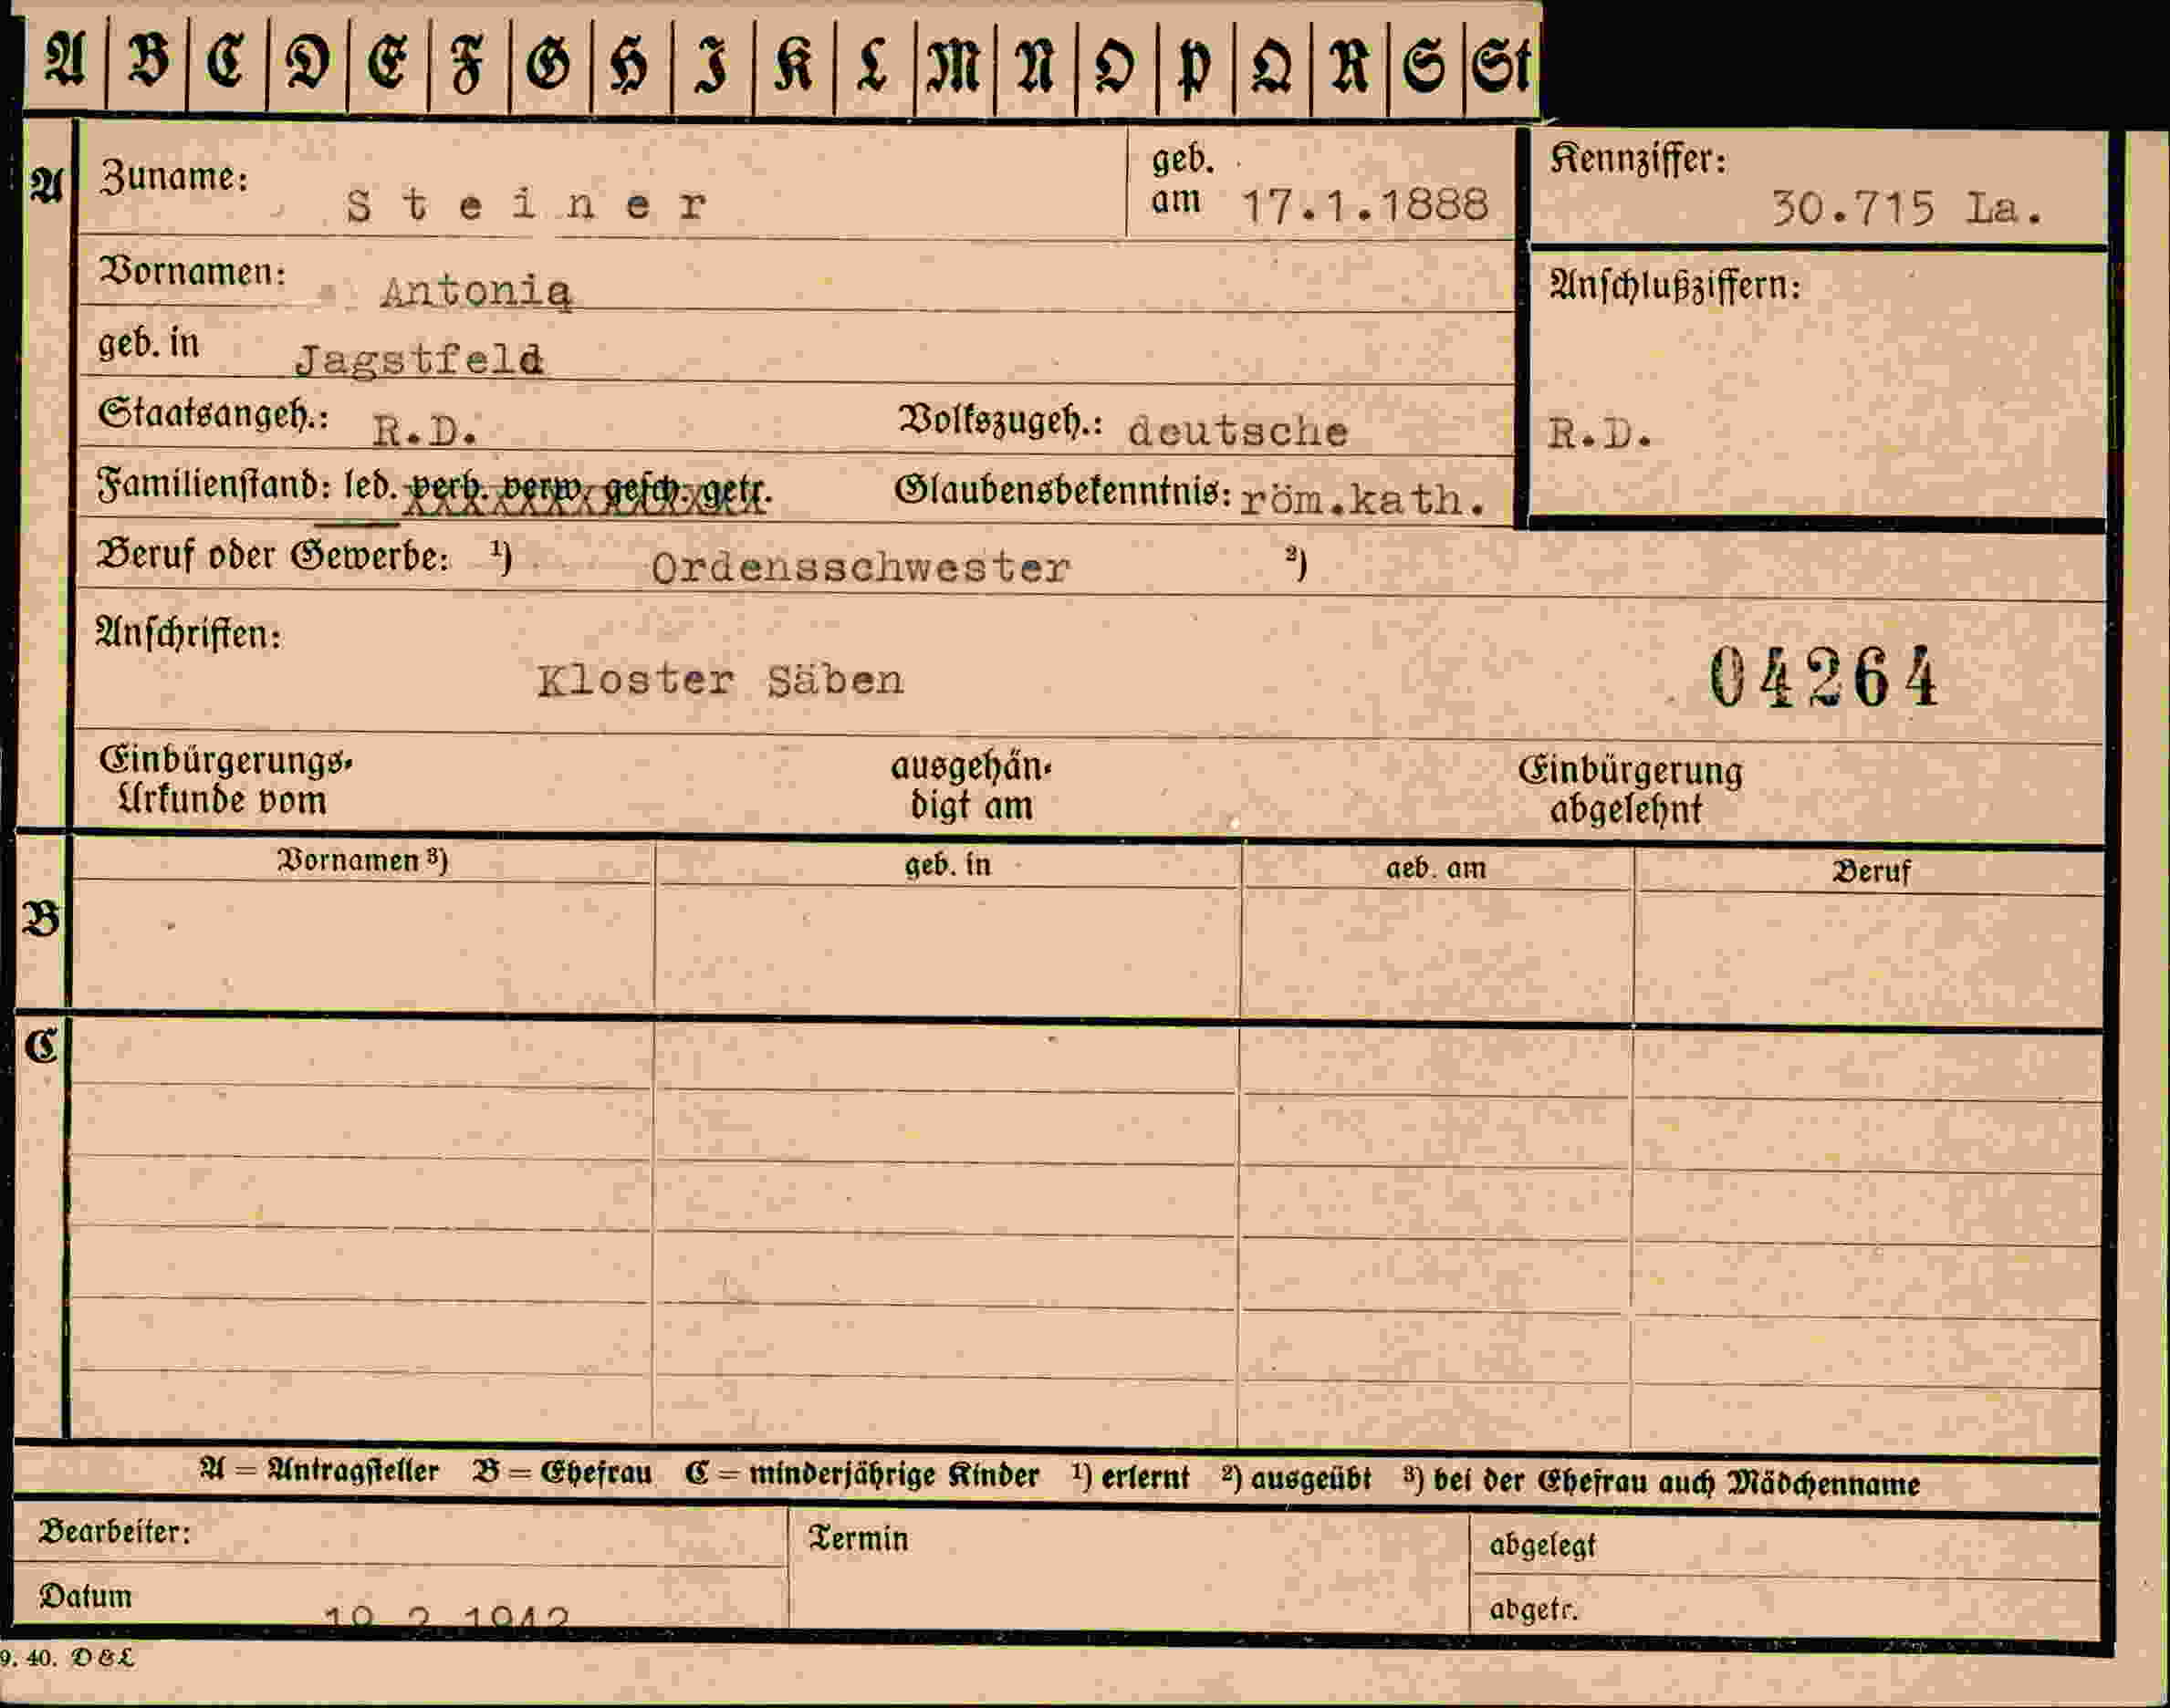 A B C D E F G H I K L M N O P Q R S St
A Zuname: Steiner geb. am 17.1.1888 Kennziffer: 30.715 La.
Vornamen: Antonia Anschlußziffern:
geb. in Jagstfeld
Staatsangeh.: R.D. Volkszugeh.: deutsche R.D.
Familienstand: led. verh. verw. gesch. getr. Glaubensbekenntnis: röm.kath.
Beruf oder Gewerbe: 1) Ordensschwester 2)
Anschriften:
Kloster Säben 04264
Einbürgerungs- ausgehän- Einbürgerung
Urkunde vom digt am abgelehnt
Vornamen 3) geb. in geb. am Beruf
B
C
A = Antragsteller B = Ehefrau C = minderjährige Kinder 1) erlernt 2) ausgeübt 3) bei der Ehefrau auch Mädchenname
Bearbeiter: Termin abgelegt
Datum 1942 abgetr.
9. 40. D & L